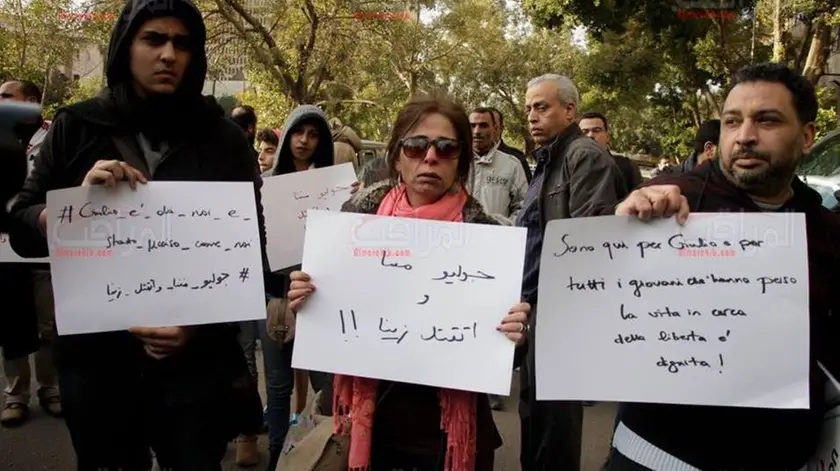 #Giulio_e'_da_noi_e_
stato_ucciso_come_noi
#جوليو_مننا_واتقتل_زينا
جوليو مننا
و
اتقتل زينا !!
Sono qui per Giulio e per
tutti i giovani che' hanno perso
la vita in cerca
della liberta e'
dignita !